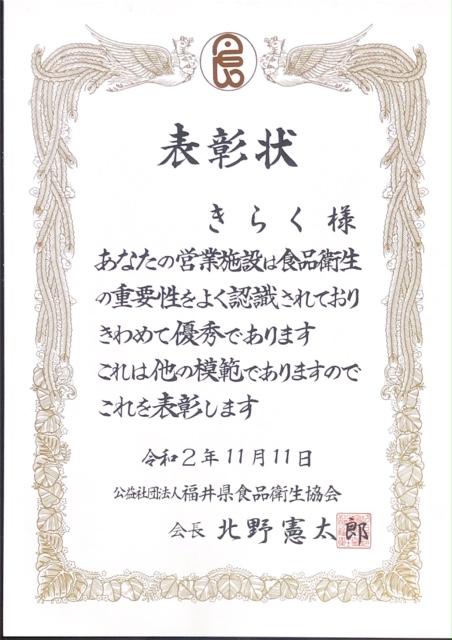 表彰状
きらく様
あなたの営業施設は食品衛生
の重要性をよく認識されており
きわめて優秀であります
これは他の模範でありますので
これを表彰します
令和2年11月11日
公益社団法人福井県食品衛生協会
会長 北野憲太郎